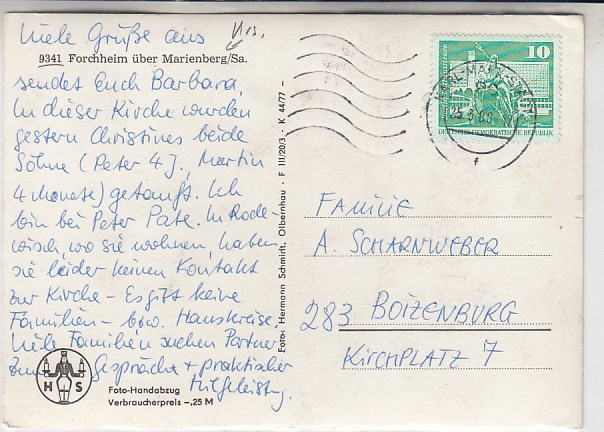 Viele Grüße aus
9341 Forchheim über Marienberg/Sa.
sendet Euch Barbara.
In dieser Kirche wurden
gestern Christines beide
Söhne (Peter 4 J., Martin
4 Monate) getauft. Ich
bin bei Peter Pate. In Rode-
wisch, wo sie wohnen, haben
sie leider keinen Kontakt
zur Kirche - Es gibt keine
Familien- bzw. Hauskreise.
Viele Familien suchen Partner
zum Gespräch + praktischer
Hilfeleistung.
H S
Foto-Handabzug
Verbraucherpreis -,25 M
Foto: Hermann Schmidt, Olbernhau · F III/20/3 · K 44/77 -
10
DEUTSCHE DEMOKRATISCHE REPUBLIK
FAMILIE
A. SCHARNWEBER
283 BOIZENBURG
KIRCHPLATZ 7